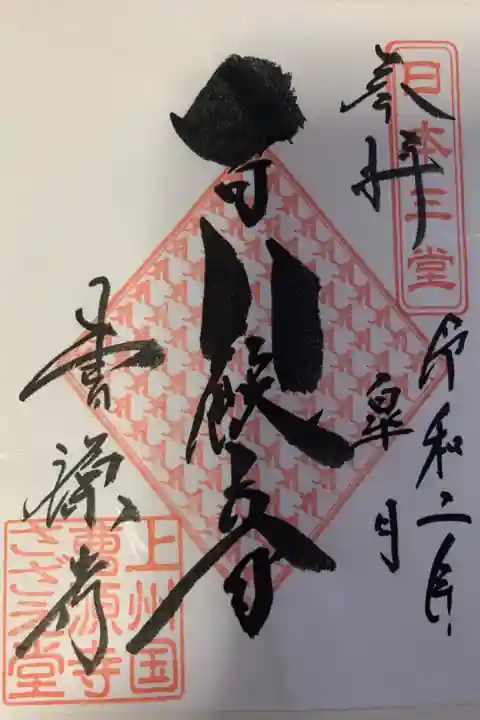 日本三堂
奉拝
令和二年
皐月
観音
曹源寺
上州国
曹源寺
さゞえ堂